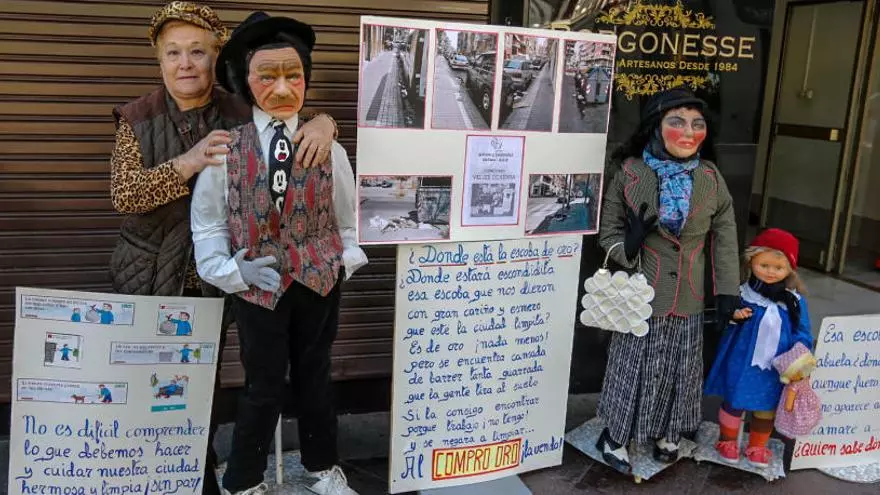 GONESSE
ARTESANOS DESDE 1984
¿Donde está la escoba de oro?
¿Donde estará escondidita
esa escoba que nos dieron
con gran cariño y esmero
que esté la ciudad limpita?
Es de oro ¡nada menos!
pero se encuentra cansada
de barrer tanta guarrada
que la gente tira al suelo
Si la consigo encontrar
porque trabajo ¡no tengo!
y se negara a limpiar...
Al COMPRO ORO ¡la vendo!
No es difícil comprender
lo que debemos hacer
y cuidar nuestra ciudad
hermosa y limpia ¡sin par!
Esa esco
abuela ¿dón
aunque fuera
no aparece a
por
¿Quien sabe do